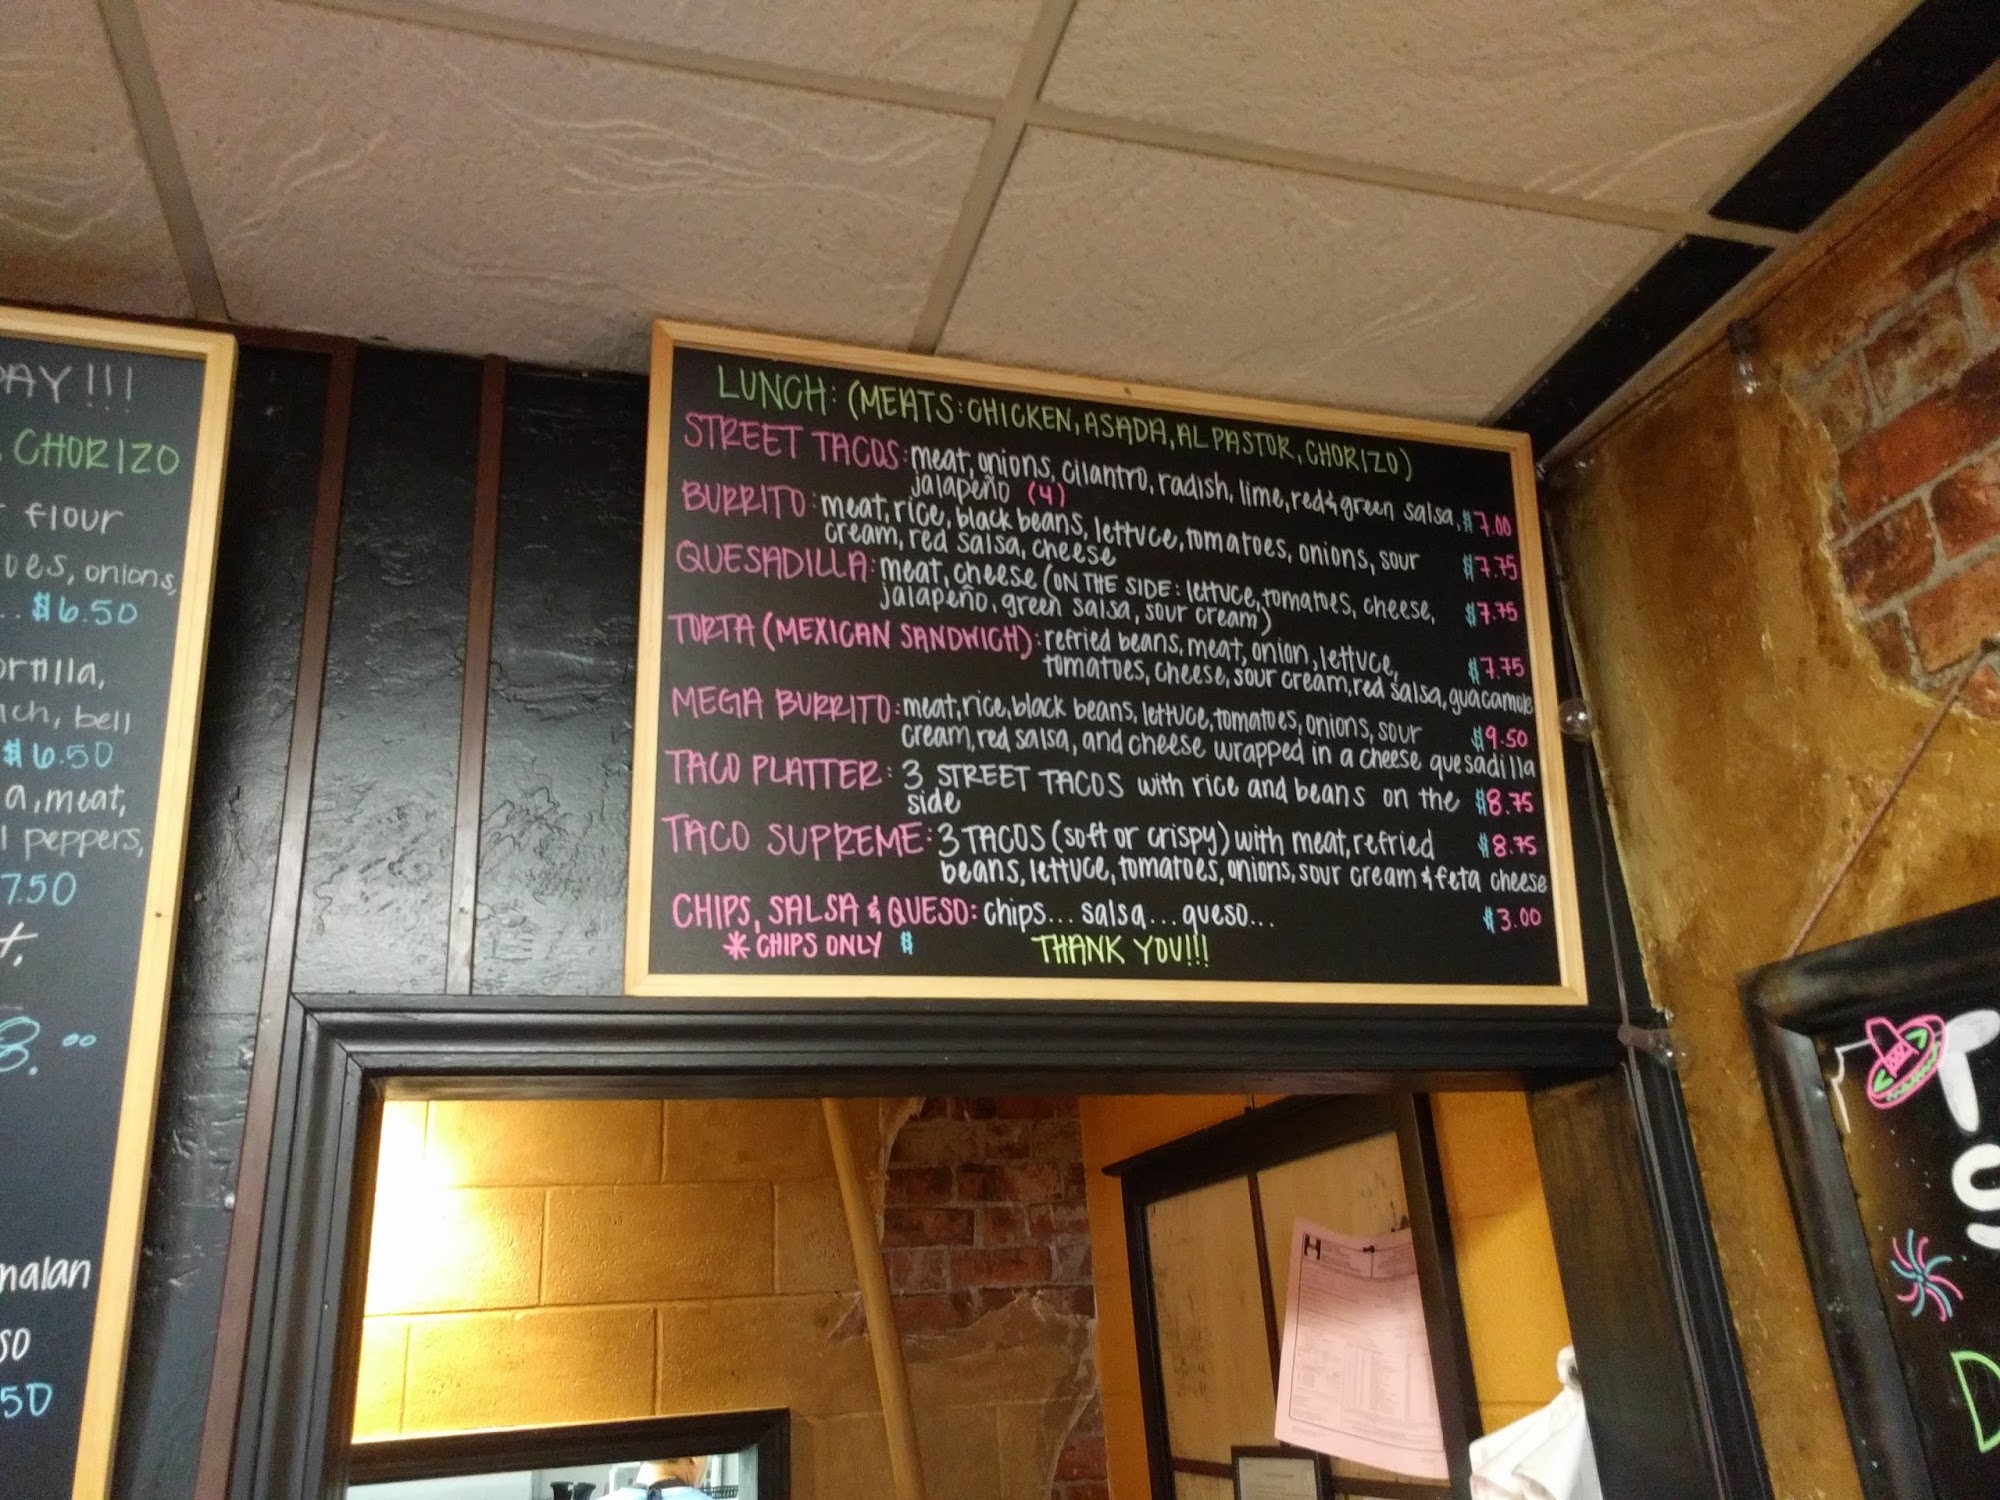 DAY!!!
CHORIZO
flour
onions,
$6.50
bell
$6.50
meat,
peppers,
7.50
8.00
LUNCH: (MEATS: CHICKEN, ASADA, AL PASTOR, CHORIZO)
STREET TACOS: meat, onions, cilantro, radish, lime, red & green salsa, $7.00
jalapeño (4)
BURRITO: meat, rice, black beans, lettuce, tomatoes, onions, sour $7.75
cream, red salsa, cheese
QUESADILLA: meat, cheese (ON THE SIDE: lettuce, tomatoes, cheese, $7.75
jalapeño, green salsa, sour cream)
TORTA (MEXICAN SANDWICH): refried beans, meat, onion, lettuce, $7.75
tomatoes, cheese, sour cream, red salsa, guacamole
MEGA BURRITO: meat, rice, black beans, lettuce, tomatoes, onions, sour $9.50
cream, red salsa, and cheese wrapped in a cheese quesadilla
TACO PLATTER: 3 STREET TACOS with rice and beans on the $8.75
side
TACO SUPREME: 3 TACOS (soft or crispy) with meat, refried $8.75
beans, lettuce, tomatoes, onions, sour cream & feta cheese
CHIPS, SALSA & QUESO: chips... salsa... queso... $3.00
* CHIPS ONLY $ THANK YOU!!!